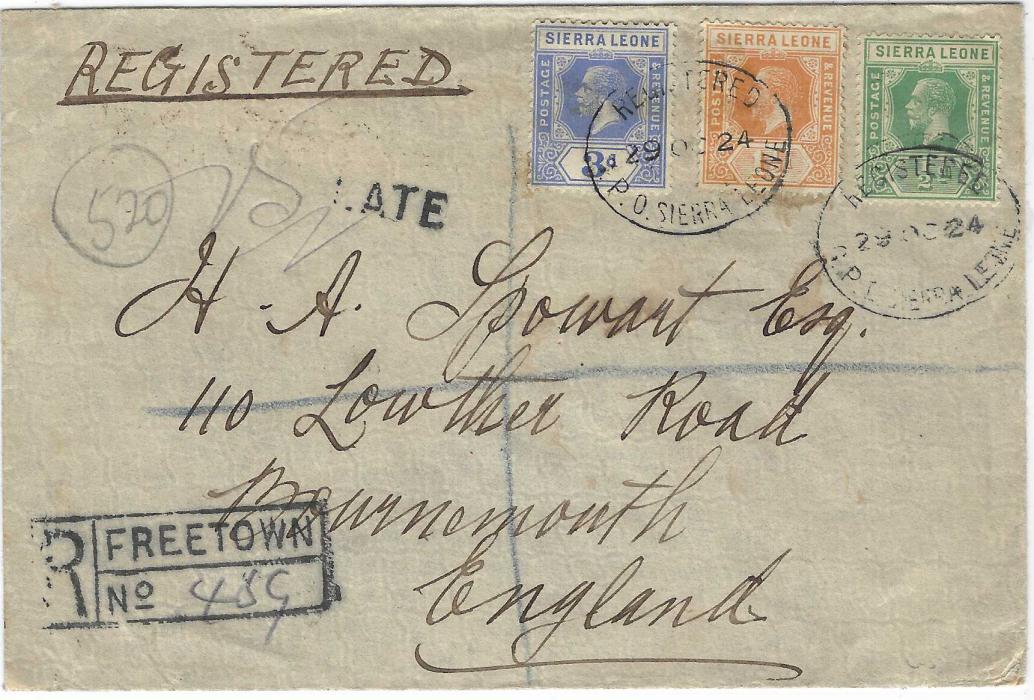 REGISTERED
SIERRA LEONE
POSTAGE & REVENUE
3d
SIERRA LEONE
POSTAGE & REVENUE
SIERRA LEONE
POSTAGE & REVENUE
REGISTERED
29 OC 24
P.O. SIERRA LEONE
REGISTERED
29 OC 24
SIERRA LEONE
570
LATE
H. A. Spowart Esq.
110 Lowther Road
Bournemouth
England
R FREETOWN
No 489